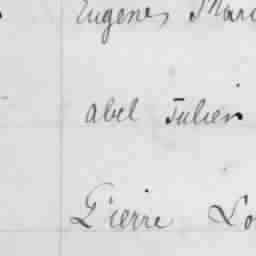 Eugène, Mar
Abel Julien
Pierre Lo